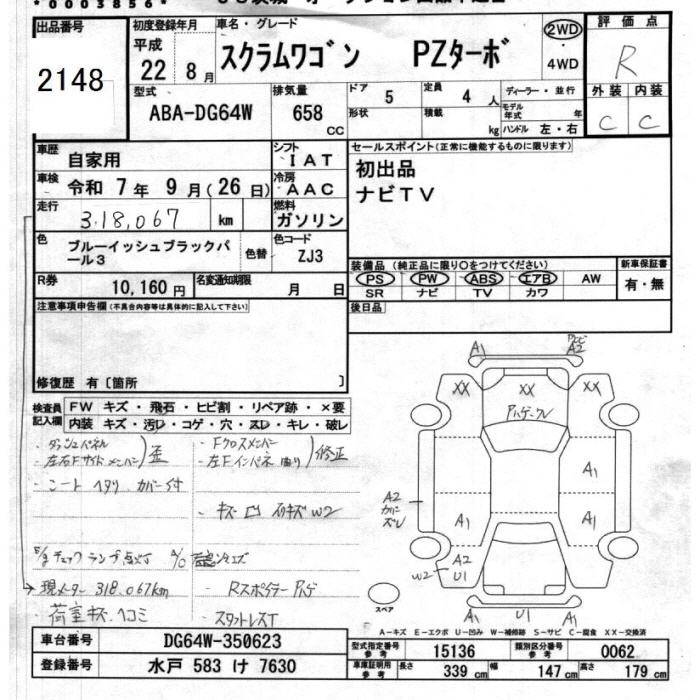 *0003856*
出品番号
2148
初度登録年月
平成
22年 8月
車名・グレード
スクラムワゴン PZターボ
2WD
4WD
評価点
R
外装 内装
C C
型式
ABA-DG64W
排気量
658
CC
ドア 5
形状
定員 4 人
積載 kg
ディーラー・並行
モデル年式 年
ハンドル 左・右
車歴 自家用
シフト
IAT
車検 令和 7年 9月(26日)
冷房
AAC
走行 318,067 km
燃料
ガソリン
セールスポイント(正常に機能するものに限ります)
初出品
ナビTV
色 ブルーイッシュブラックパール3
色替
色コード
ZJ3
R券 10,160円
名変通知期限 月 日
装備品(純正品に限り○をつけてください)
PS PW ABS エアB AW
SR ナビ TV カワ
新車保証書
有・無
注意事項申告欄(不具合内容等は具体的に記入して下さい)
後日品
修復歴 有〔箇所 〕
検査員記入欄
FW キズ・飛石・ヒビ割・リペア跡・×要
内装 キズ・汚レ・コゲ・穴・スレ・キレ・破レ
・ダッシュパネル
・左右Fサイドメンバー 歪
・Fクロスメンバー
・左Fインパネ 曲り 修正
・シートヘタリ カバー付
・キズ凹 スリキズW2
チェックランプ点灯
現メーター 318,067km
・Rスポイラーハゲ
・荷室キズ・ヘコミ
・スタットレスT
A1
A2
XX XX XX
ハゲ
A1
A1 A1
A2
カバー
ズレ
A2
W2 U1
U1 A1
スペア
A-キズ E-エクボ U-凹み W-補修跡 S-サビ C-腐食 XX-交換済
車台番号 DG64W-350623
登録番号 水戸 583 け 7630
型式指定番号 参考 15136
類別区分番号 参考 0062
車庫証明用 参考 長さ 339 cm 幅 147 cm 高さ 179 cm